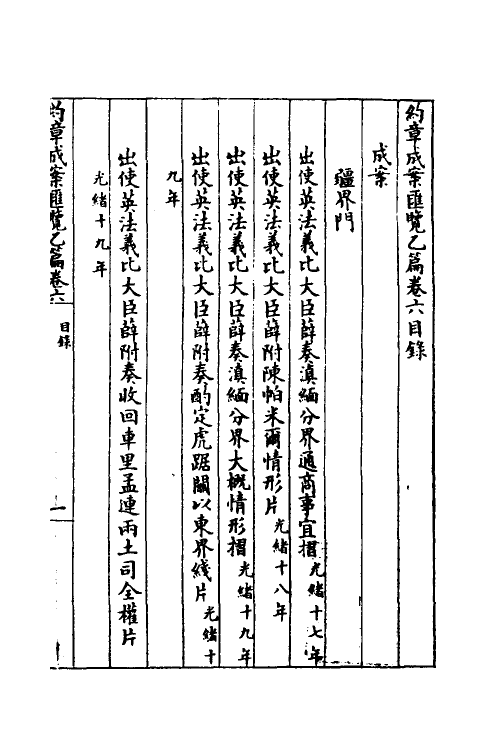 約章成案匯覽乙篇卷六目錄
成案
疆界門
出使英法義比大臣薛奏滇緬分界通商事宜摺光緒十七年
出使英法義比大臣薛附陳帕米爾情形片光緒十八年
出使英法義比大臣薛奏滇緬分界大概情形摺光緒十九年
出使英法義比大臣薛附奏酌定虎踞關以東界綫片光緒十
九年
出使英法義比大臣薛附奏收回車里孟連兩土司全權片
光緒十九年
約章成案匯覽乙篇卷六
目錄
一